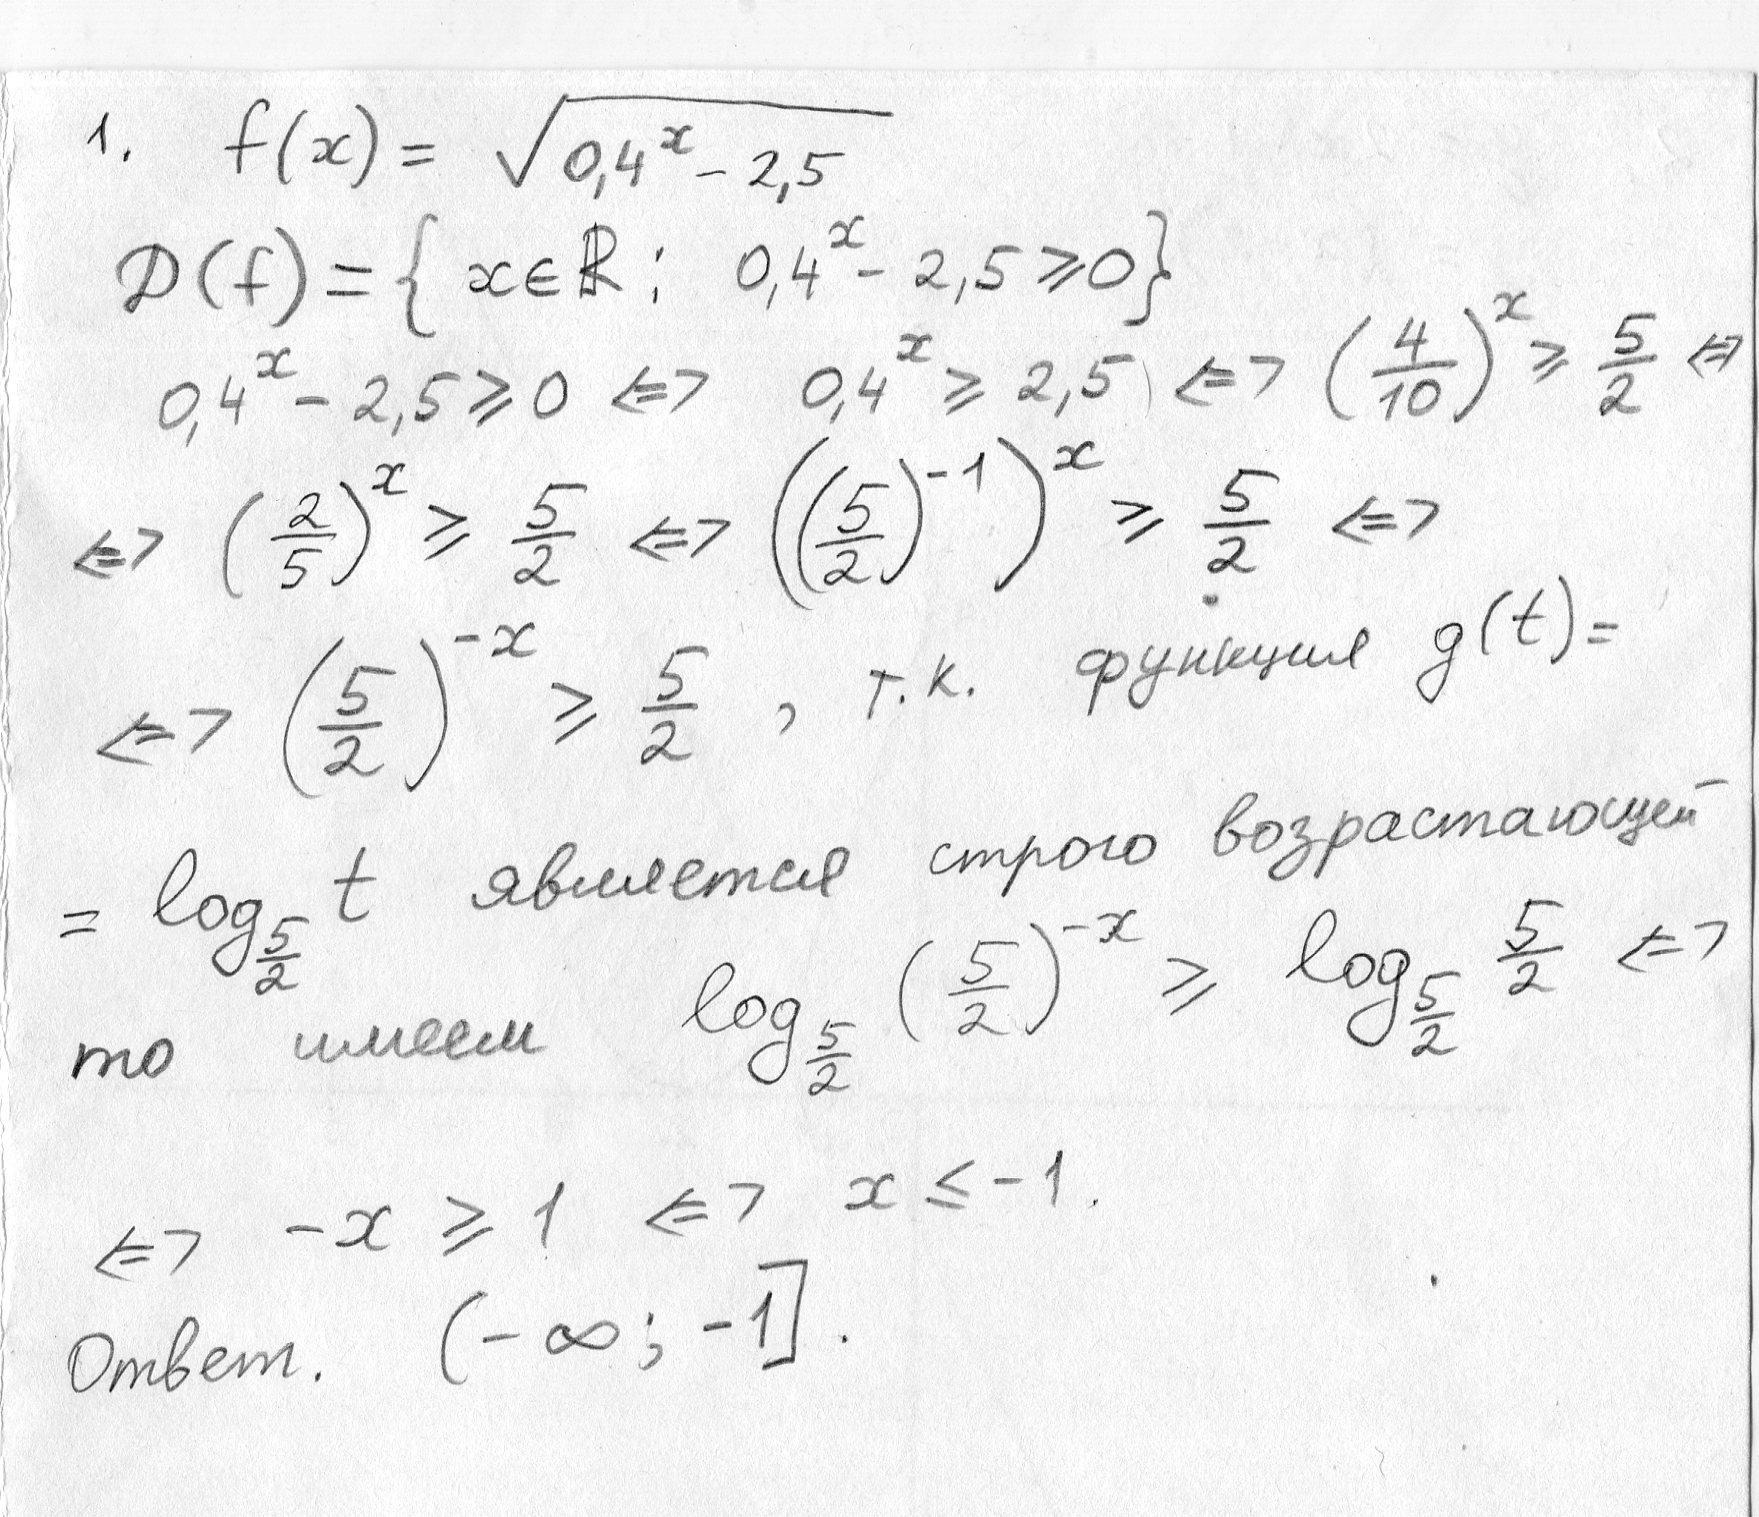 1. f(x) = √(0,4^x - 2,5)
D(f) = { x ∈ ℝ : 0,4^x - 2,5 ⩾ 0 }
0,4^x - 2,5 ⩾ 0 ⇔ 0,4^x ⩾ 2,5 ⇔ (4/10)^x ⩾ 5/2 ⇔
⇔ (2/5)^x ⩾ 5/2 ⇔ ((5/2)^-1)^x ⩾ 5/2 ⇔
⇔ (5/2)^-x ⩾ 5/2 , т.к. функция g(t) =
= log_5/2 t является строго возрастающей
то имеем log_5/2 (5/2)^-x ⩾ log_5/2 5/2 ⇔
⇔ -x ⩾ 1 ⇔ x ⩽ -1.
Ответ. (-∞; -1].